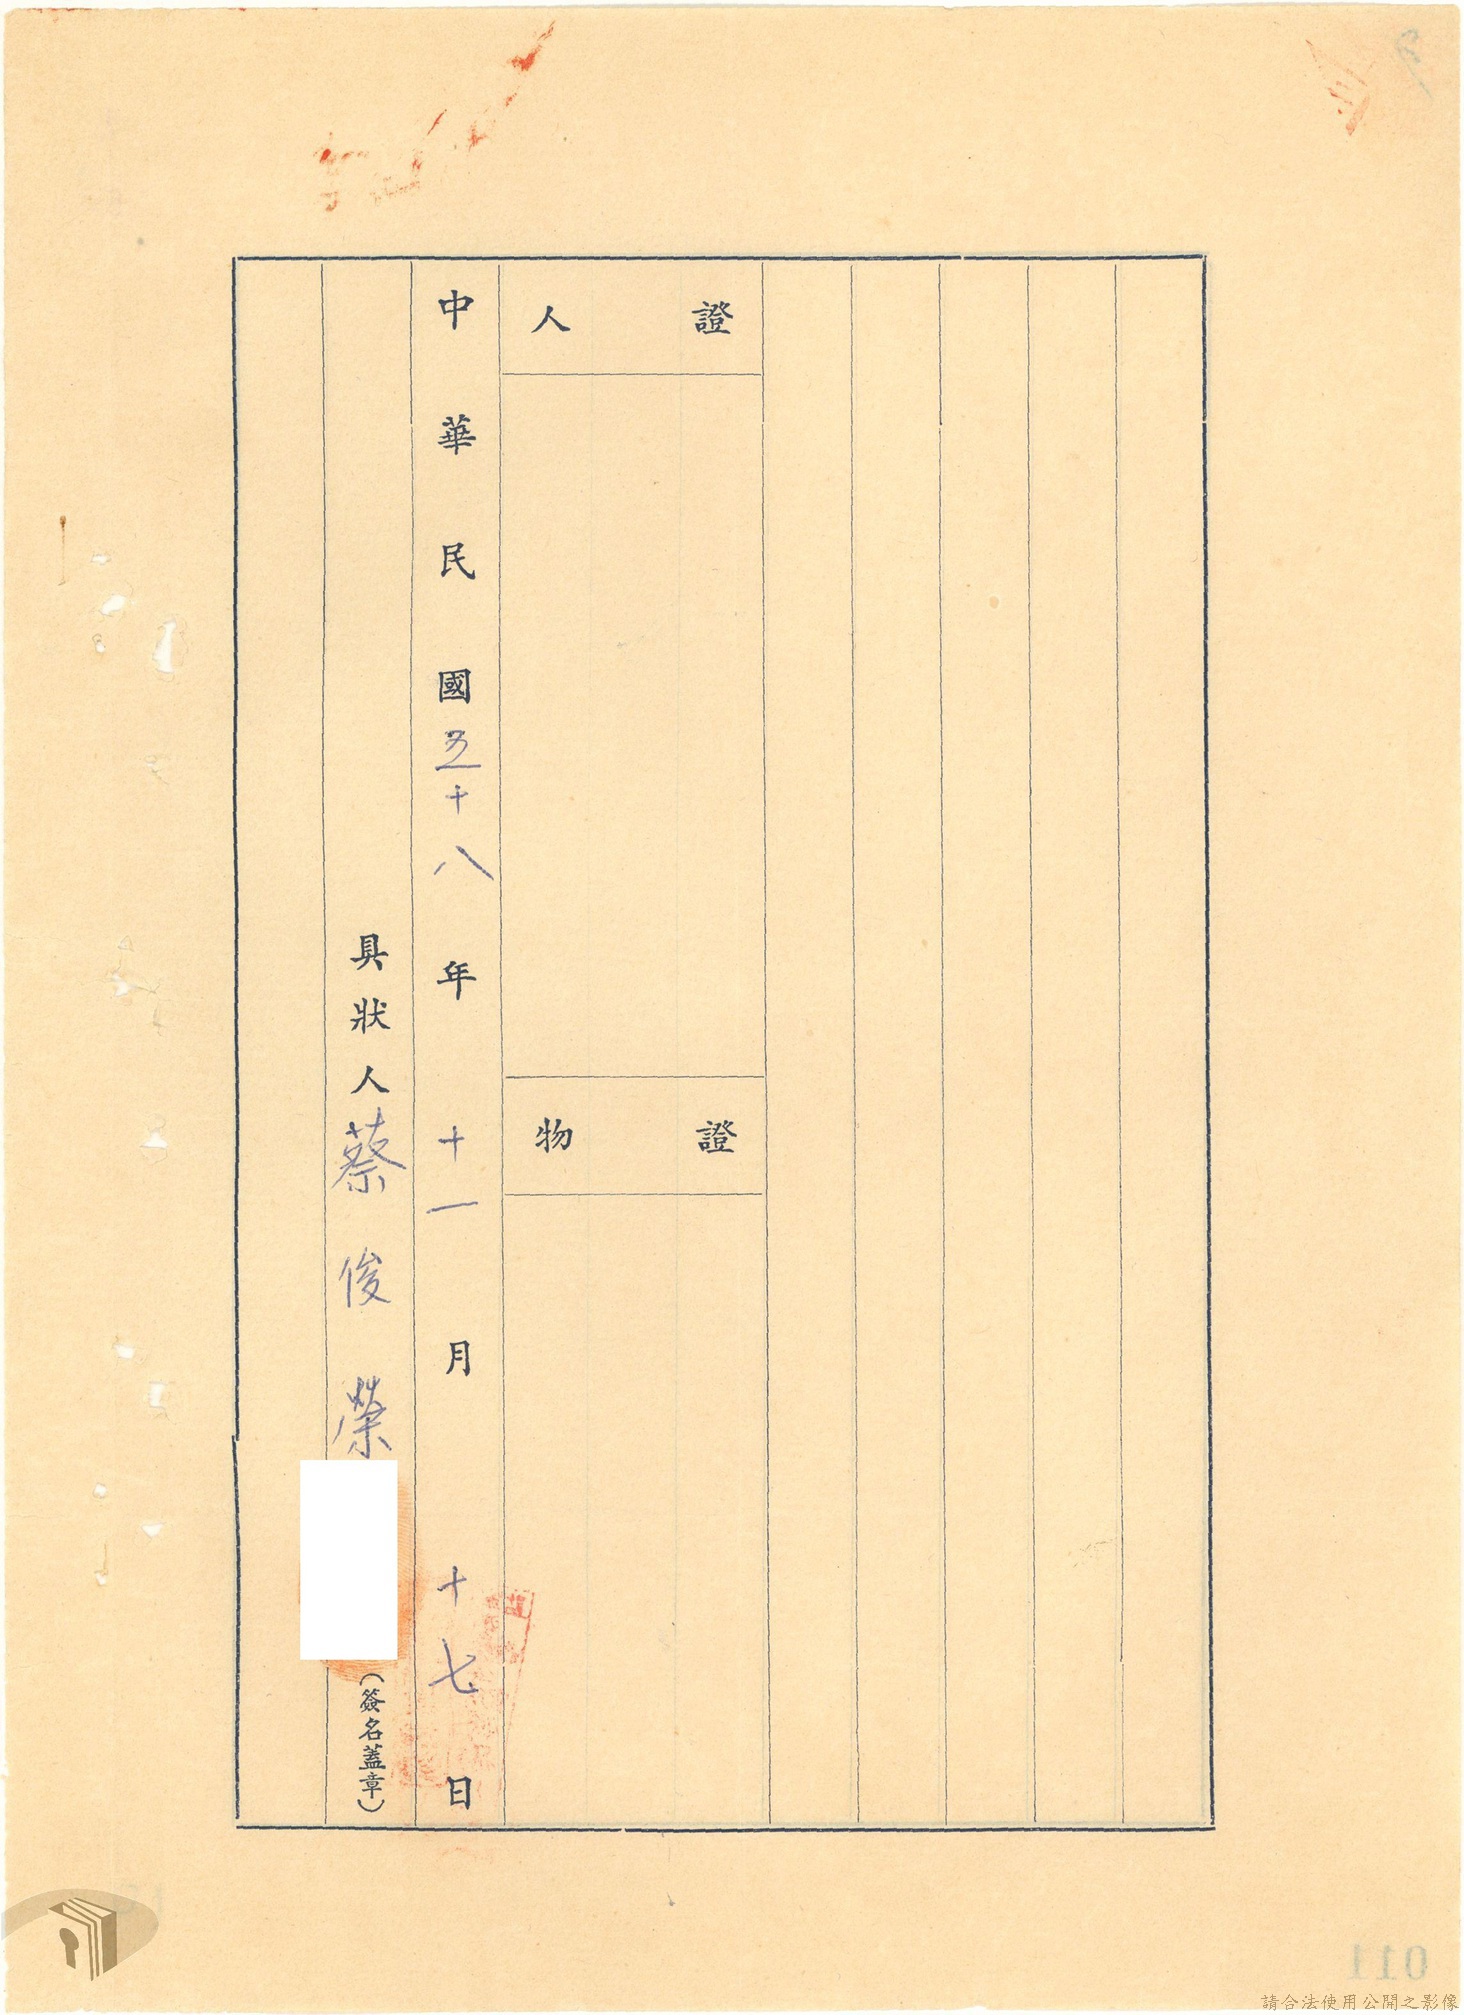 證人
證物
中華民國五十八年十一月十七日
具狀人蔡俊榮(簽名蓋章)
011
請合法使用公開之影像